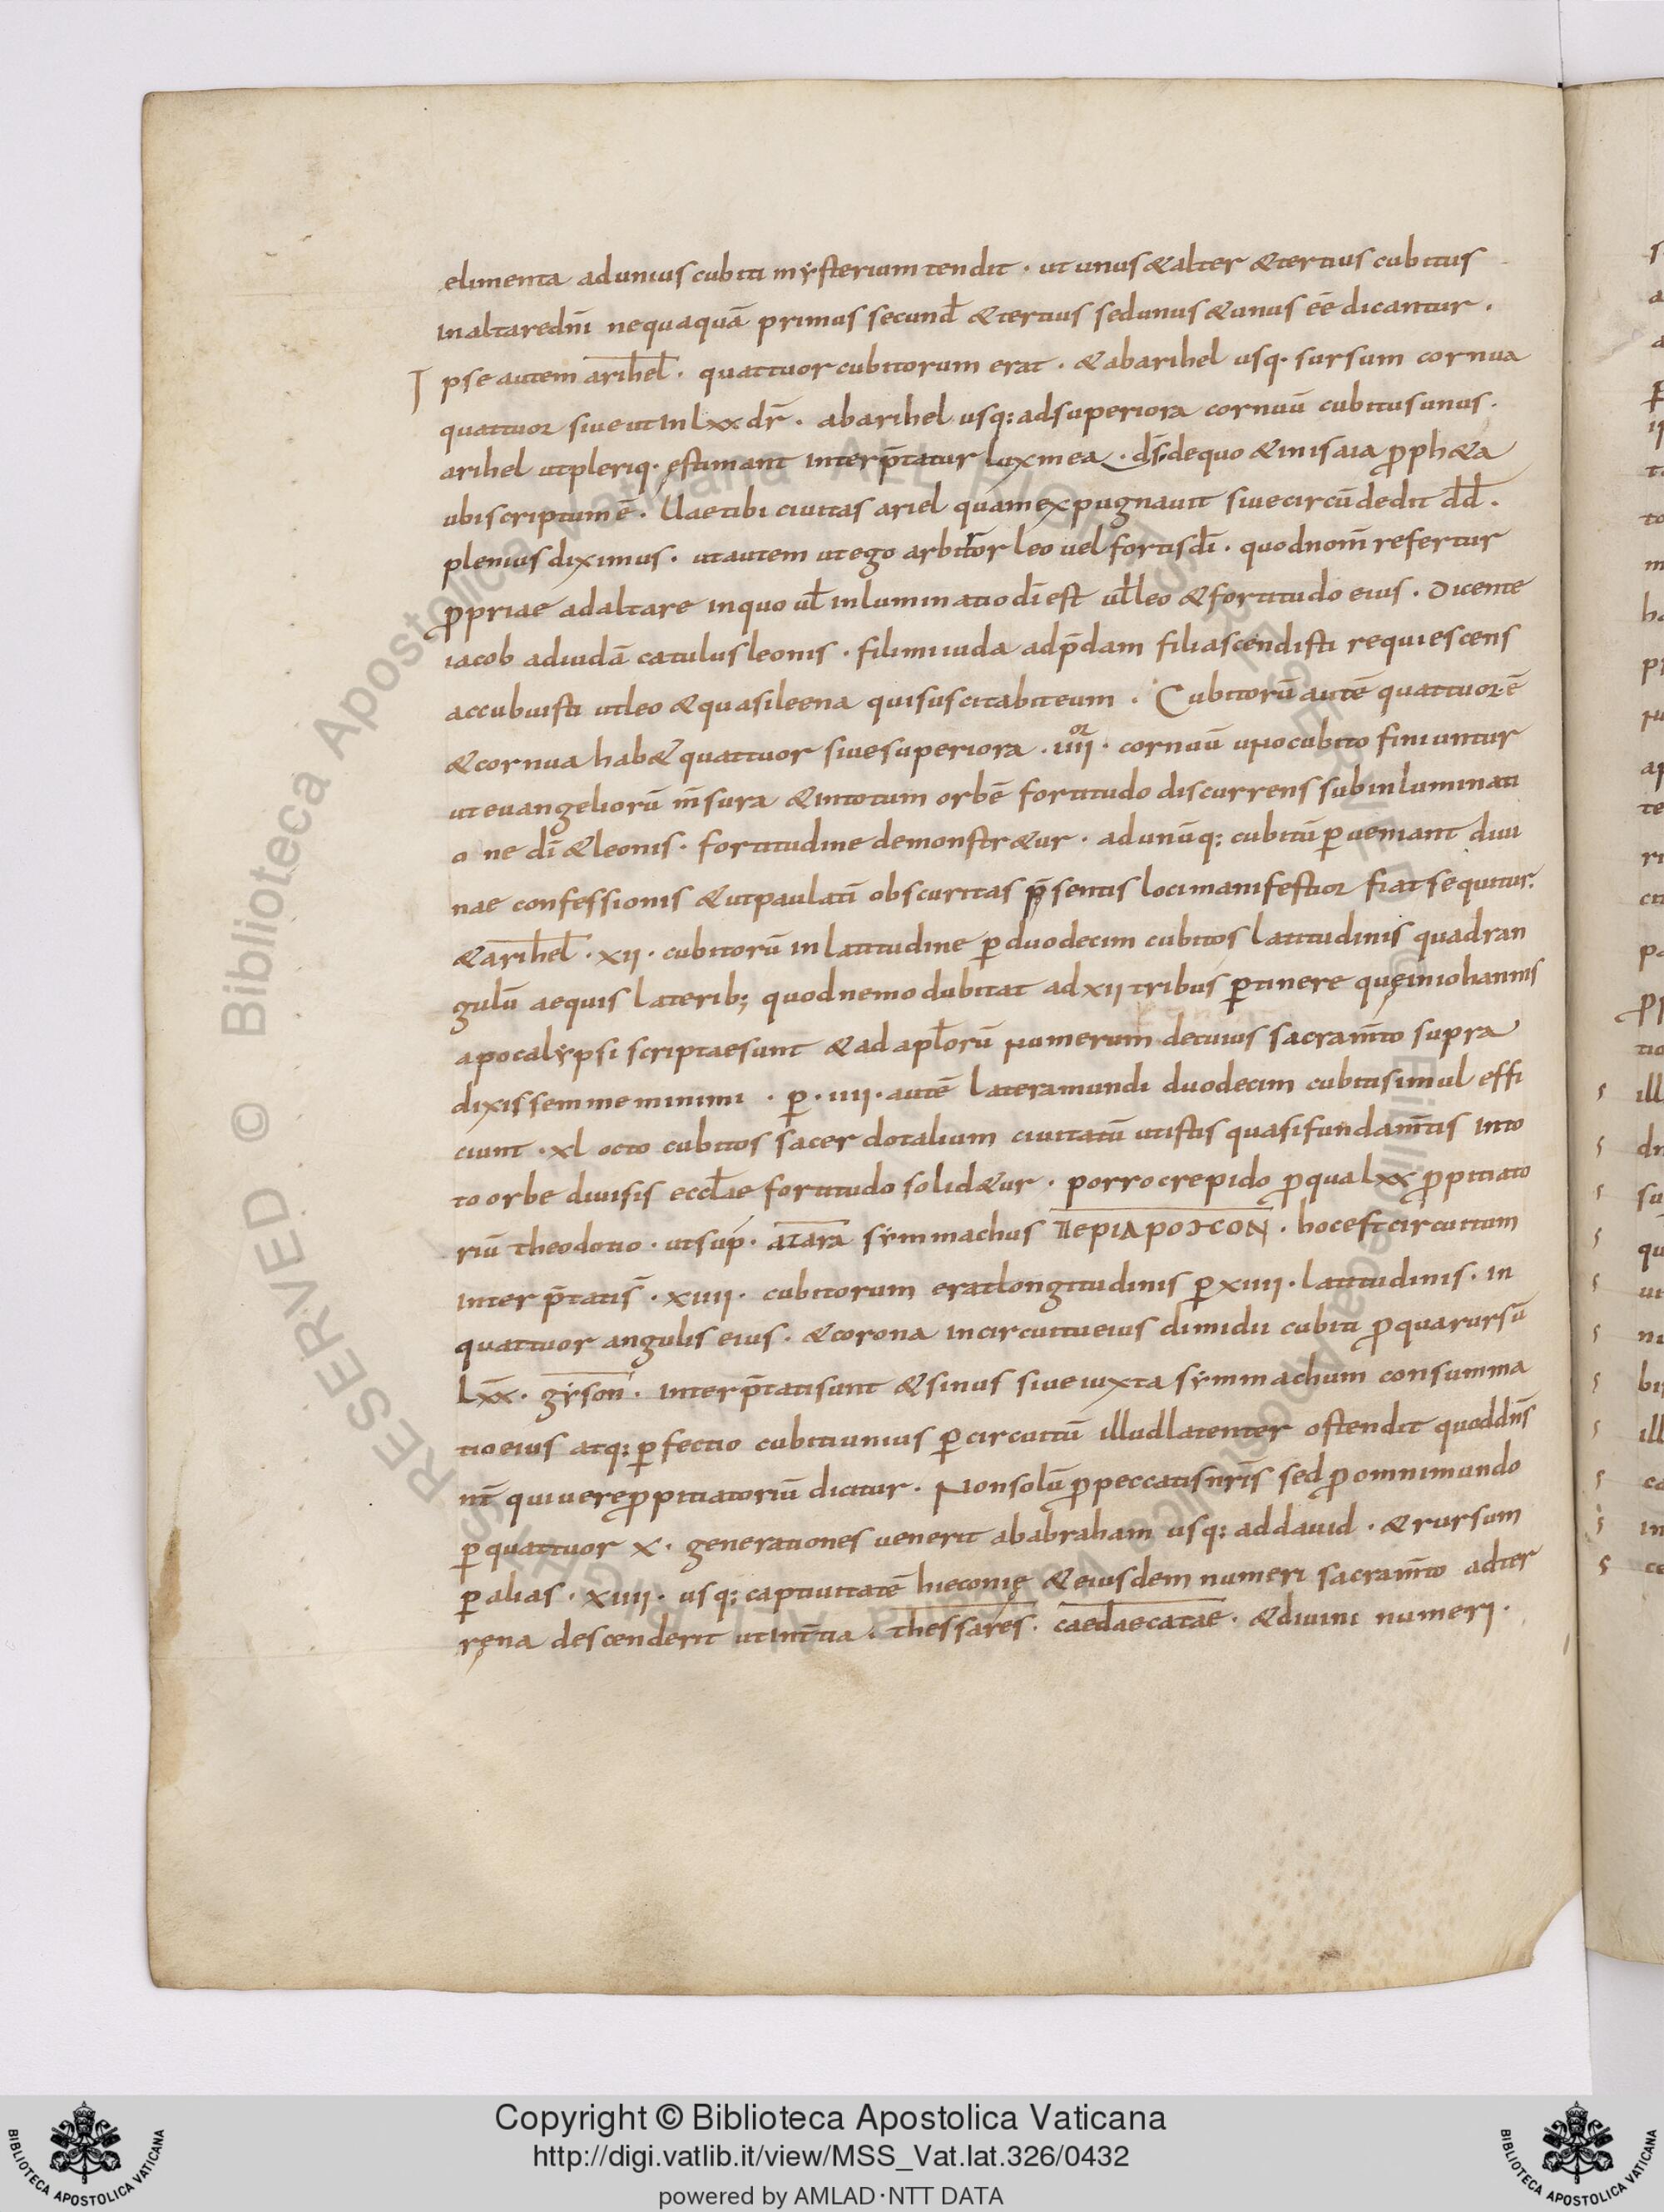 elimenta ad unius cubiti mysterium tendit · ut unus & alter & tertius cubitus
in altare dn̄i nequaquā primus secund̄ & tertius sed unus & unus ēē dicantur ·
Ipse autem arihel · quattuor cubitorum erat · & ab arihel usq· sursum cornua
quattuor siue ut in lxx dr̄ · ab arihel usq: ad superiora cornuū cubitus unus ·
arihel ut pleriq· ęstimant interp̄tatur lux mea · dī de quo & in isaia proph&a
ubi scriptum ē · Uae tibi ciuitas ariel quam expugnauit siue circūdedit dd̄ ·
plenius diximus · ut autem ut ego arbitror leo uel fortis dī · quod nom̄ refertur
propriae ad altare in quo ul̄ inluminatio dī est ul̄ leo & fortitudo eius · Dicente
iacob ad iudā catulus leonis · fili mi iuda ad p̄dam fili ascendisti requiescens
accubuisti ut leo & quasi leena quis uscitabit eum · Cubitorū autē quattuor · ē
& cornua hab& quattuor siue superiora · iiii or · cornuū uno cubito finiuntur
ut euangeliorū m̄sura & in totum orbē fortitudo discurrens sub inluminati
o ne dī & leonis · fortitudine demonstr&ur · ad unūq: cubitū p̱ueniant diui
nae confessionis & ut paulatī obscuritas p̄sentis loci manifestior fiat sequitur:
& arihel · xii · cubitorū in latitudine p̱ duodecim cubitos latitudinis quadran
gulū aequis laterib; quod nemo dubitat ad xii tribus p̱tinere quę in iohannis
apocalypsi scriptae sunt & ad apl̄orū numerum de cuius sacram̄to supra
dixissem me minimi · p̱ · iiii · autē latera mundi duodecim cubiti simul effi
ciunt · xl octo cubitos sacerdotalium ciuitatū ut istis quasi fundam̄tis in to
to orbe diuisis eccl̄ae fortitudo solid&ur · porro crepido pro qua lxx propitiato
riū theodotio · ut sup̄ · atara symmachus · hoc est circuitum
interp̄tatis̄ · xiiii · cubitorum erat longitudinis p̱ xiiii · latitudinis · in
quattuor angulis eius · & corona in circuitu eius dimidii cubiti pro qua rursū
lxx · gyson · interp̄tati sunt & sinus siue iuxta symmachum consumma
tio eius atq: p̱fectio cubiti unius p̱ circuitū illud latenter ostendit quod dn̄s
nr̄ qui uere propitiatoriū dicitur · Non solū pro peccatis nr̄is sed pro omni mundo
p̱ quattuor x · generationes uenerit ab abraham usq: ad dauid · & rursum
p̱ alias · xiiii · usq: captiuitatē hieconię & eiusdem numeri sacram̄to ad ter
rena descenderit ut · thessares · caedaecatae · & diuini numeri ·
Copyright © Biblioteca Apostolica Vaticana
http://digi.vatlib.it/view/MSS_Vat.lat.326/0432
powered by AMLAD·NTT DATA
BIBLIOTECA APOSTOLICA VATICANA
BIBLIOTECA APOSTOLICA VATICANA